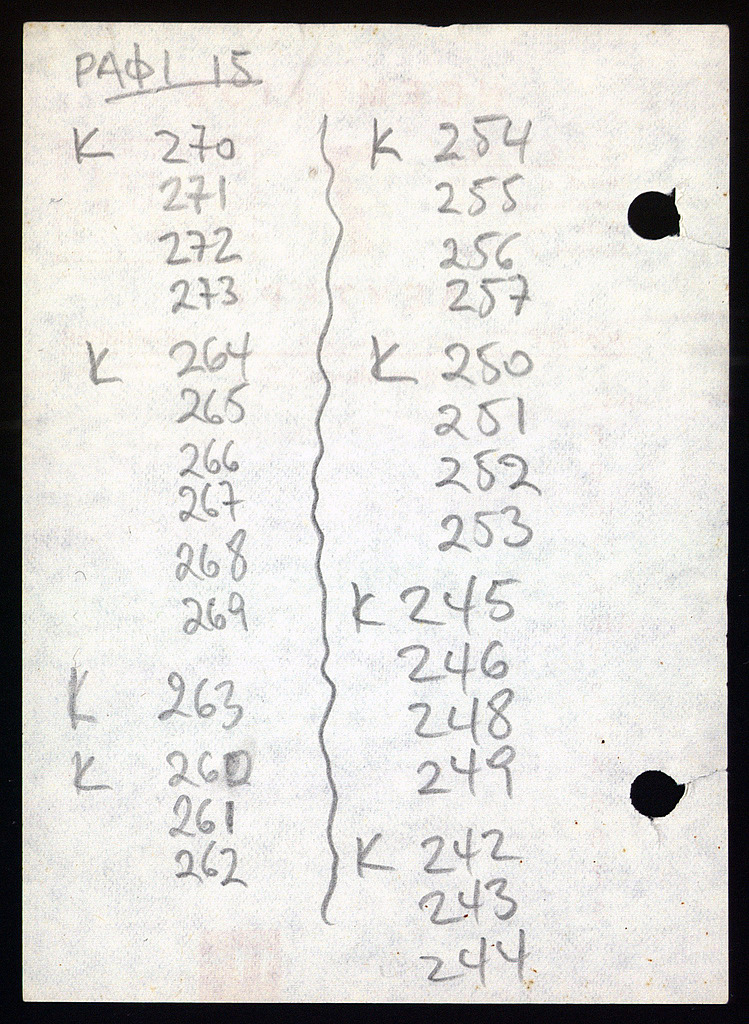 ΡΑΦΙ 15
Κ 270
271
272
273
Κ 264
265
266
267
268
269
Κ 263
Κ 260
261
262
Κ 254
255
256
257
Κ 250
251
252
253
Κ 245
246
248
249
Κ 242
243
244